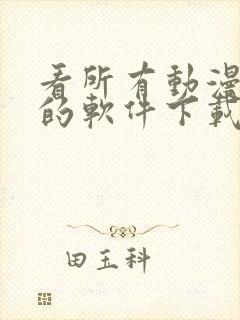 看所有動漫
的軟件下載
田玉科